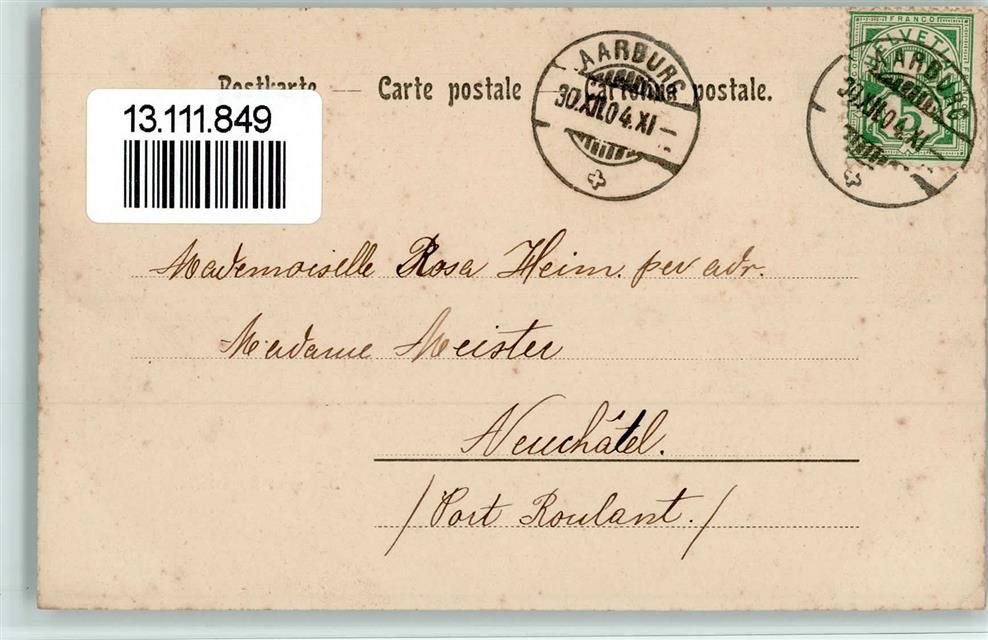 Postkarte — Carte postale — Cartolina postale.
13.111.849
AARBURG
30.XII.04.XI
FRANCO
HELVETIA
5
AARBURG
30.XII.04.XI
Mademoiselle Rosa Heim. per adr.
Madame Meister
Neuchâtel.
/Port Roulant./